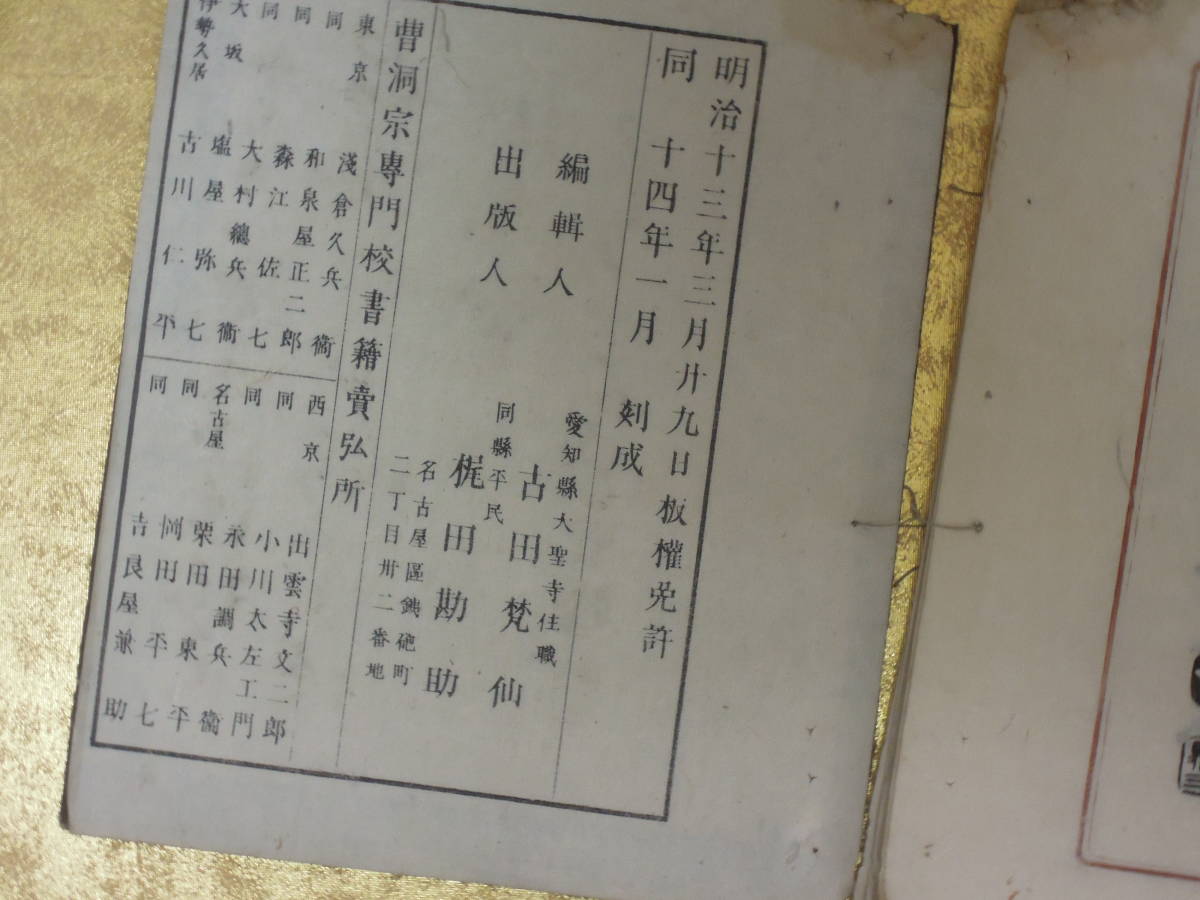 明治十三年三月廿九日板權免許
同 十四年一月 刻成
愛知縣大聖寺住職
編輯人 古田梵仙
同縣平民
出版人 梶田勘助
名古屋區鉄砲町
二丁目卅二番地
曹洞宗專門校書籍賣弘所
東京 淺倉久兵衞
同 和泉屋正二郎
同 森江佐七
同 大村總兵衞
大坂 塩屋弥七
伊勢久居 古川仁平
西京 出雲寺文二郎
同 小川太左工門
同 永田調兵衞
名古屋 栗田東平
同 岡田平七
同 吉良屋兼助